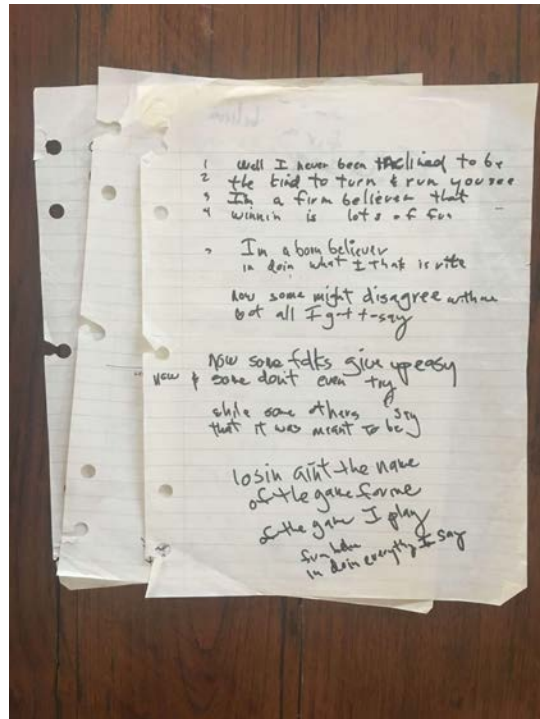 1 Well I never been inclined to be
2 the kind to turn & run you see
3 Im a firm believer that
4 winnin is lots of fun
Im a born believer
in doin what I think is rite
now some might disagree with me
but all I got to say
Now some folks give up easy
Now & some dont even try
while some others say
that it was meant to be
losin aint the name
of the game for me
of the game I play
firm believer
in doin everything I say